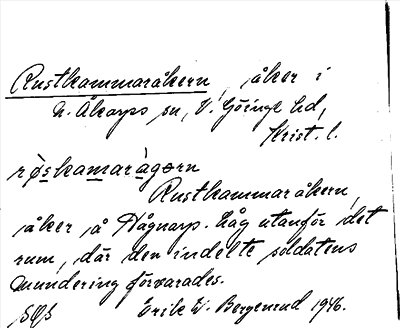 Rustkammaråkern, åker i
N. Åkarps sn, V. Göinge hd,
Krist. l.
rø̀skamaràgərn
Rustkammaråkern,
åker å Hågnarp. Låg utanför det
rum, där den indelte soldatens
mundering förvarades.
Erik W. Bergenrud 1946.